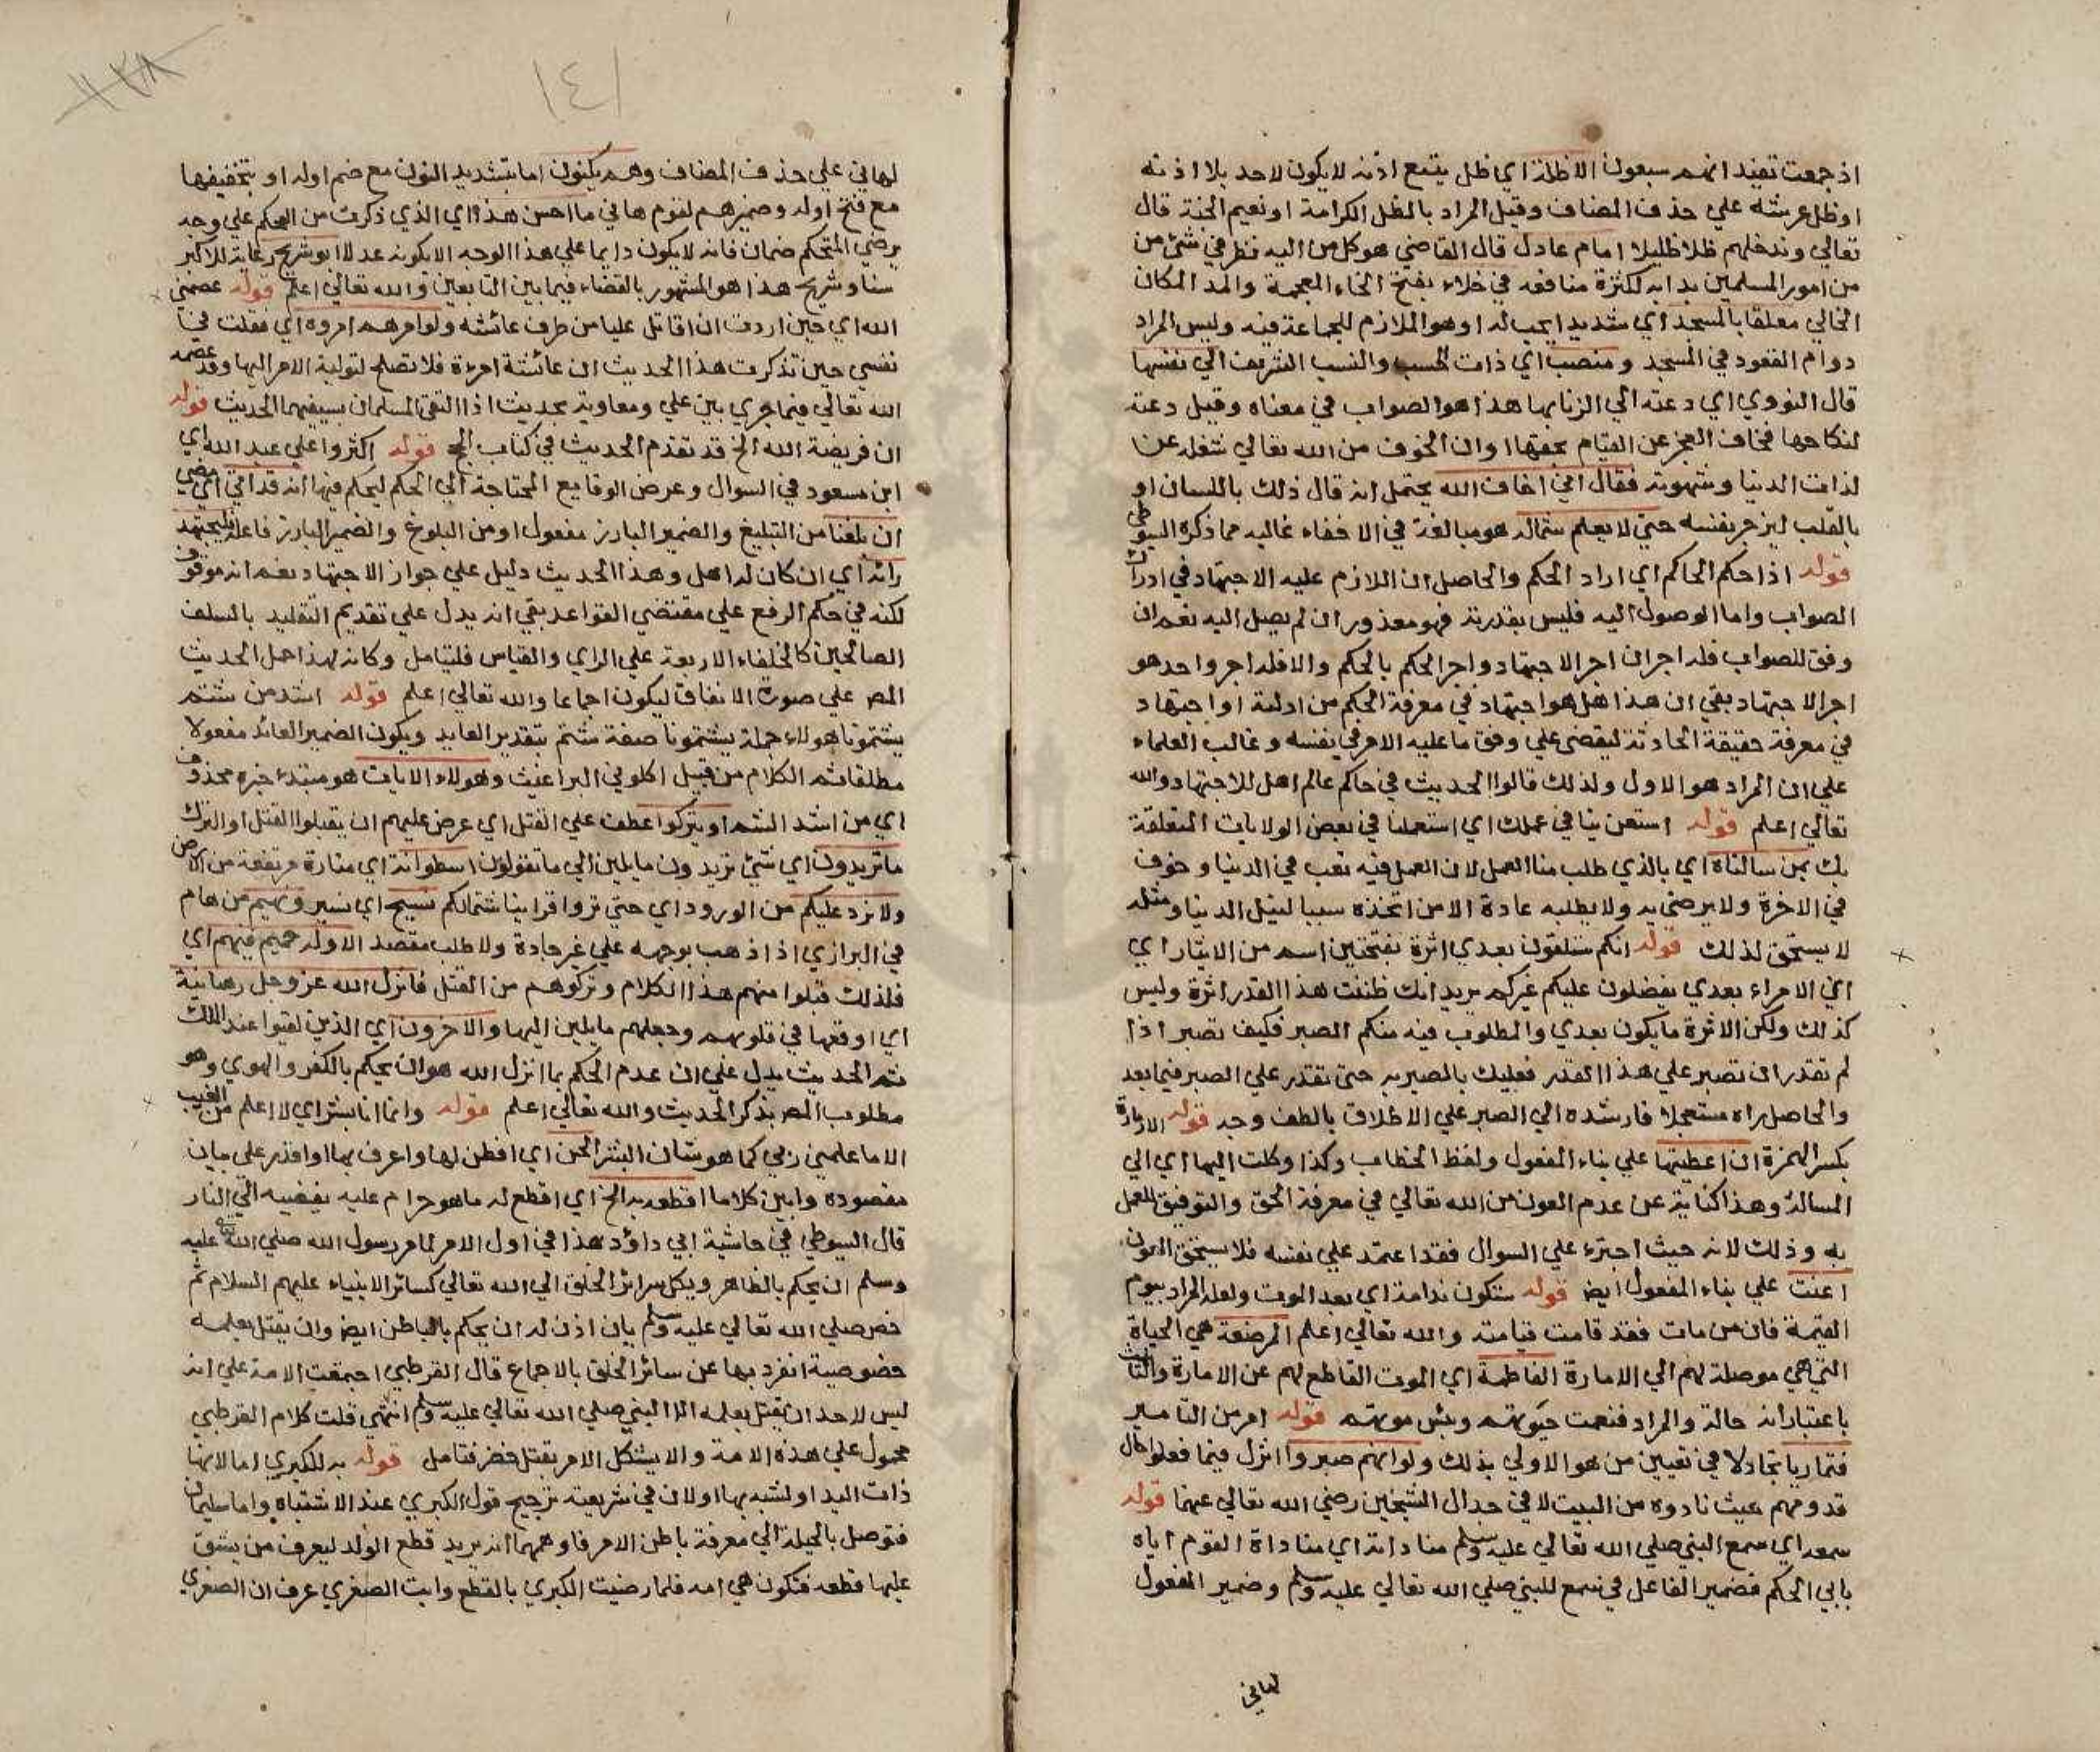 اذ جمعت تفيد انهم سبعون الاظلة اي ظل يتبع اذنه لا يكون لاحد بلا اذنه
او ظل عرشه علي حذف المضاف وقيل المراد بالظل الكرامة او نعيم الجنة قال
تعالي وندخلهم ظلا ظليلا امام عادل قال القاضي هو كل من اليه نظر في شئ من
من امور المسلمين بدا به لكثرة منافعه في خلاء بفتح الخاء المعجمة والمد المكان
الخالي معلقا بالمسجد اي شديد الحب له او هو الملازم للجماعة فيه وليس المراد
دوام القعود في المسجد ومنصب اي ذات الحسب والنسب الشريف الي نفسها
قال النووي اي دعته الي الزنا بها هذا هو الصواب في معناه وقيل دعته
لنكاحها فخاف العجز عن القيام بحقها او ان الخوف من الله تعالي شغله عن
لذات الدنيا وشهوته فقال اني اخاف الله يحتمل انه قال ذلك باللسان او
بالقلب ليزجر بنفسه حتي لا يعلم شماله هو مبالغة في الاخفاء غاليه مما ذكره السيوطي
قوله اذا حكم الحاكم اي اراد الحكم والحاصل ان اللازم عليه الاجتهاد في ادراك
الصواب واما الوصول اليه فليس بقدرته فهو معذور ان لم يصل اليه نعم ان
وفق للصواب فله اجران اجر الاجتهاد واجر الحكم بالحكم والا فله اجر واحد هو
اجر الاجتهاد بقي ان هذا هل هو اجتهاد في معرفة الحكم من ادلته او اجتهاد
في معرفة حقيقة الحادثة ليقضي علي وفق ما عليه الامر في نفسه وغالب العلماء
علي ان المراد هو الاول ولذلك قالوا الحديث في حاكم عالم اهل للاجتهاد والله
تعالي اعلم قوله استعن بنا في عملك اي استعملنا في بعض الولايات المتعلقة
بك بمن سالناه اي بالذي طلب منا العمل لان العمل فيه تعب في الدنيا وخوف
في الاخرة ولا يرضي به ولا يطلبه عادة الا من اتخذه سببا لنيل الدنيا ومثله
لا يستحق لذلك قوله انكم ستلقون بعدي اثرة بفتحتين اسم من الايثار اي
اي الامراء بعدي يفضلون عليكم غيركم يريد انك ظننت هذا القدر اثرة وليس
كذلك ولكن الاثرة ما يكون بعدي والمطلوب فيه منكم الصبر فكيف تصبر اذا
لم تقدر ان تصبر علي هذا القدر فعليك بالصبر به حتي تقدر علي الصبر فيما بعد
والحاصل راه مستعجلا فارشده الي الصبر علي الاطلاق بالطف وجه قوله الامارة
بكسر الهمزة ان اعطيتها علي بناء المفعول ولفظ الخطاب وكذا وكلت اليها اي الي
المسالة وهذا كناية عن عدم العون من الله تعالي في معرفة الحق والتوفيق للعمل
به وذلك لانه حيث اجترء علي السوال فقد اعتمد علي نفسه فلا يستحق العون
اعنت علي بناء المفعول ايض قوله ستكون ندامة اي بعد الموت ولعله المراد بيوم
القيمة فان من مات فقد قامت قيامته والله تعالي اعلم المرضعة هي الحياة
التي هي موصلة لهم الي الامارة الفاطمة اي الموت القاطع لهم عن الامارة والتانيث
باعتبار انه حالة والمراد فنعمت حيوتهم وبئس موتهم قوله امر من التامير
فتماريا تجادلا في تعيين من هو الاولي بذلك ولو انهم صبروا انزل فيما فعلوا حال
قدومهم حيث نادوه من البيت لا في جدال الشيخين رضي الله تعالي عنهما قوله
سمعه اي سمع النبي صلي الله تعالي عليه وسلم مناداته اي مناداة القوم اياه
بابي الحكم فضمير الفاعل في سمع للنبي صلي الله تعالي عليه وسلم وضمير المفعول
لهاني
١٤١
لهاني علي حذف المضاف وهم يكنون اما بتشديد النون مع ضم اوله او بتخفيفها
مع فتح اوله وضميرهم لقوم هاني ما احسن هذا اي الذي ذكرت من الحكم علي وجه
يرضي المتحكم ضمان فانه لا يكون دايما علي هذا الوجه الا بكونه عدلا ابو شريح رعاية للاكبر
سنا وشريح هذا هو المشهور بالقضاء فيما بين التابعين والله تعالي اعلم قوله عصمني
الله اي حين اردت ان اقاتل عليا من طرف عائشة ولوا امرهم امروة اي فقلت في
نفسي حين تذكرت هذا الحديث ان عائشة امرءة فلا تصلح لتولية الامر اليها وقد عصمه
الله تعالي فيما جري بين علي ومعاوية بحديث اذا التقي المسلمان بسيفيهما الحديث قوله
ان فريضة الله الخ قد تقدم الحديث في كتاب الحج قوله اكثروا علي عبد الله اي
ابن مسعود في السوال وعرض الوقايع المحتاجة الي الحكم ليحكم فيها انه قد اتي اي مضي
ان بلغنا من التبليغ والضمير البارز مفعول او من البلوغ والضمير البارز فاعله فليجتهد
رائه اي ان كان له اهل وهذا الحديث دليل علي جواز الاجتهاد نعم انه موقوف
لكنه في حكم الرفع علي مقتضي القواعد بقي انه يدل علي تقديم التقليد بالسلف
الصالحين كالخلفاء الاربعة علي الراي والقياس فليتامل وكانه لهذا حمل الحديث
المص علي صورة الاتفاق ليكون اجماعا والله تعالي اعلم قوله اشد من شتم
يشتمونا هولاء جملة يشتمونا صفة شتم بتقدير العايد ويكون الضمير العائد مفعولا
مطلقا ثم الكلام من قبيل اكلوني البراغيث وهولاء الايات هو مبتدء خبره محذوف
اي من اشد الشتم او يتركوا عطف علي القتل اي عرض عليهم ان يقبلوا القتل او الترك
ما تريدون اي شئ تريدون مايلين الي ما تقولون اسطوانة اي منارة مرتفعة من الارض
ولا نرد عليكم من الورود اي حتي تروا قرابنا شتمالكم نسيح اي نسير ونهيم من هام
في البراري اذا ذهب بوجهه علي غير جادة ولا طلب مقصد الا وله حميم فيهم اي
فلذلك قبلوا منهم هذا الكلام وتركوهم من القتل فانزل الله عز وجل رهبانية
اي اوقعها في قلوبهم وجعلهم مايلين اليها والاخرون اي الذين لقوا عند الملك
ثم الحديث يدل علي ان عدم الحكم بما انزل الله هو ان يحكم بالكفر والهوي وهو
مطلوب المص بذكر الحديث والله تعالي اعلم قوله وانما انا بشر اي لا اعلم من الغيب
الا ما علمني ربي كما هو شان البشر الحن اي افطن لها واعرف بها او اقدر علي بيان
مقصوده وابين كلاما اقطعه به الخ اي اقطع له ما هو حرام عليه يفضيه الي النار
قال السيوطي في حاشية ابي داؤد هذا في اول الامر لما امر رسول الله صلي الله عليه
وسلم ان يحكم بالظاهر ويكل سرائر الخلق الي الله تعالي كسائر الانبياء عليهم السلام ثم
خص صلي الله تعالي عليه وسلم بان اذن له ان يحكم بالباطن ايض وان يقتل بعلمه
خصوصية انفرد بها عن سائر الخلق بالاجماع قال القرطبي اجتمعت الامة علي انه
ليس لاحد ان يقتل بعلمه الا النبي صلي الله تعالي عليه وسلم انتهي قلت كلام القرطبي
محمول علي هذه الامة والا يشكل الامر بقتل خضر فتامل قوله به للكبري اما لانها
ذات اليد او لشبه بها او لان في شريعته ترجيح قول الكبري عند الاشتباه واما سليمان
فتوصل بالحيلة الي معرفة باطن الامر فاوهمهما انه يريد قطع الولد ليعرف من يشق
عليها قطعه فتكون هي امه فلما رضيت الكبري بالقطع وابت الصغري عرف ان الصغري